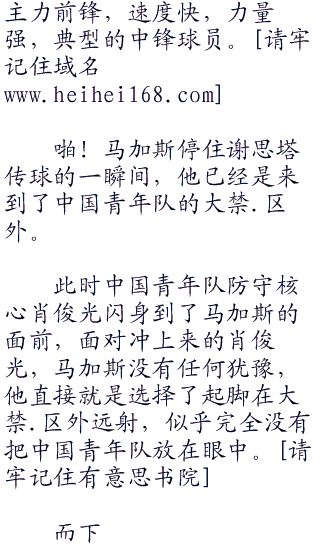 主力前锋，速度快，力量
强，典型的中锋球员。[请牢
记住域名
www.heihei168.com]
啪！马加斯停住谢思塔
传球的一瞬间，他已经是来
到了中国青年队的大禁.区
外。
此时中国青年队防守核
心肖俊光闪身到了马加斯的
面前，面对冲上来的肖俊
光，马加斯没有任何犹豫，
他直接就是选择了起脚在大
禁.区外远射，似乎完全没有
把中国青年队放在眼中。[请
牢记住有意思书院]
而下